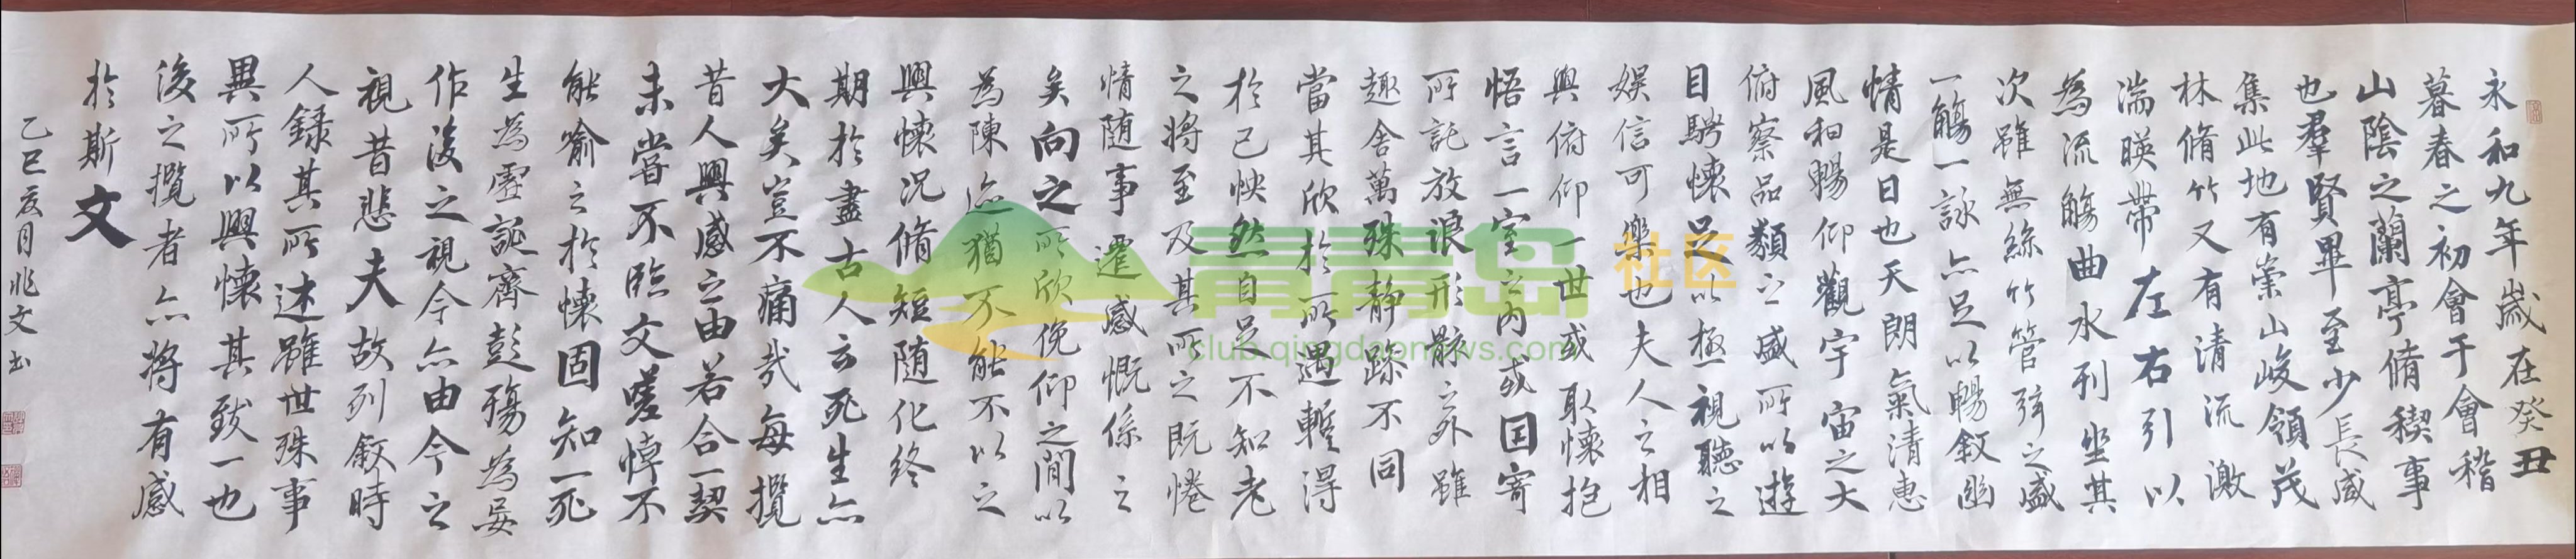 永和九年歲在癸丑
暮春之初會于會稽
山陰之蘭亭脩稧事
也羣賢畢至少長咸
集此地有崇山峻領茂
林脩竹又有清流激
湍暎帶左右引以
為流觴曲水列坐其
次雖無絲竹管弦之盛
一觴一詠亦足以暢敘幽
情是日也天朗氣清惠
風和暢仰觀宇宙之大
俯察品類之盛所以遊
目騁懷足以極視聽之
娛信可樂也夫人之相
與俯仰一世或取懷抱
悟言一室之內或因寄
所託放浪形骸之外雖
趣舍萬殊静躁不同
當其欣於所遇蹔得
於己怏然自足不知老
之將至及其所之既惓
情随事遷感慨係之
矣向之所欣俛仰之間以
為陳迹猶不能不以之
興懷况脩短随化終
期於盡古人云死生亦
大矣豈不痛哉每攬
昔人興感之由若合一契
未甞不臨文嗟悼不
能喻之於懷固知一死
生為虛誕齊彭殤為妄
作後之視今亦由今之
視昔悲夫故列敘時
人録其所述雖世殊事
異所以興懷其致一也
後之攬者亦將有感
於斯文
乙巳夏月兆文书
青青岛社区
club.qingdaonews.com